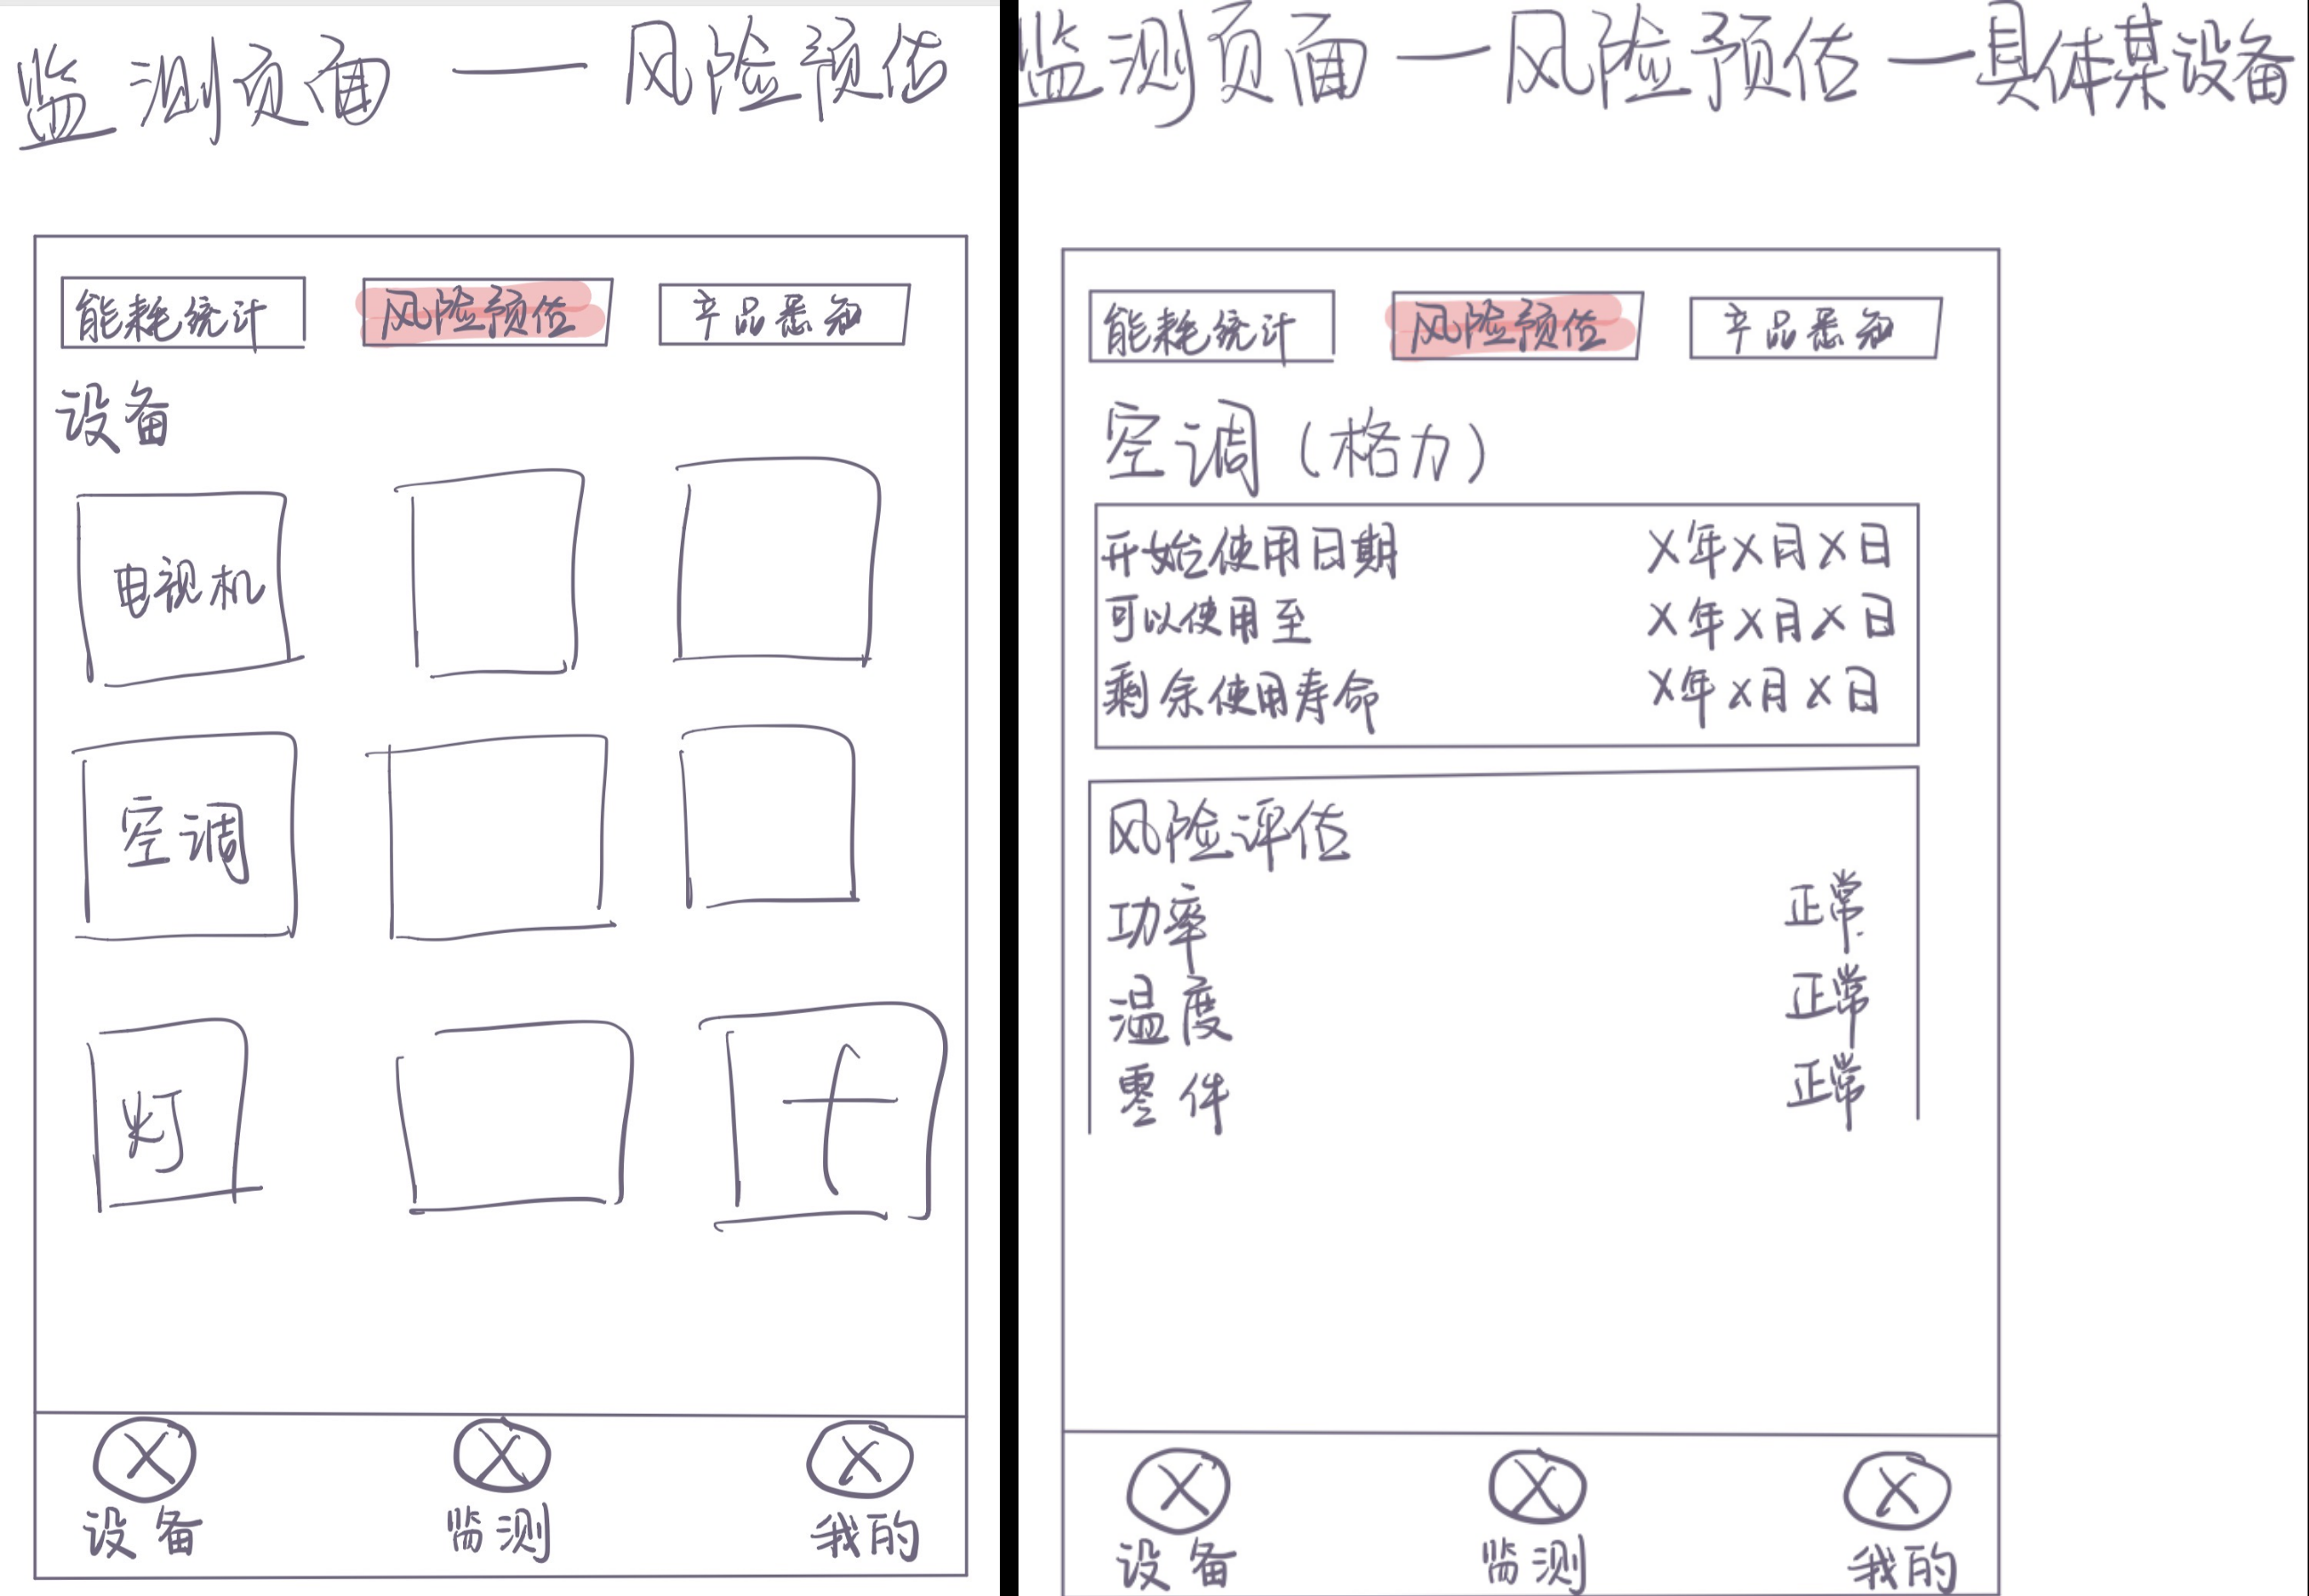 监测页面 —— 风险预估
能耗统计 风险预估 产品悉知
设备
电视机
空调
灯
设备 监测 我的
监测页面 — 风险预估 — 具体某设备
能耗统计 风险预估 产品悉知
空调（格力）
开始使用日期 X年X月X日
可以使用至 X年X月X日
剩余使用寿命 X年X月X日
风险评估
功率 正常
温度 正常
零件 正常
设备 监测 我的